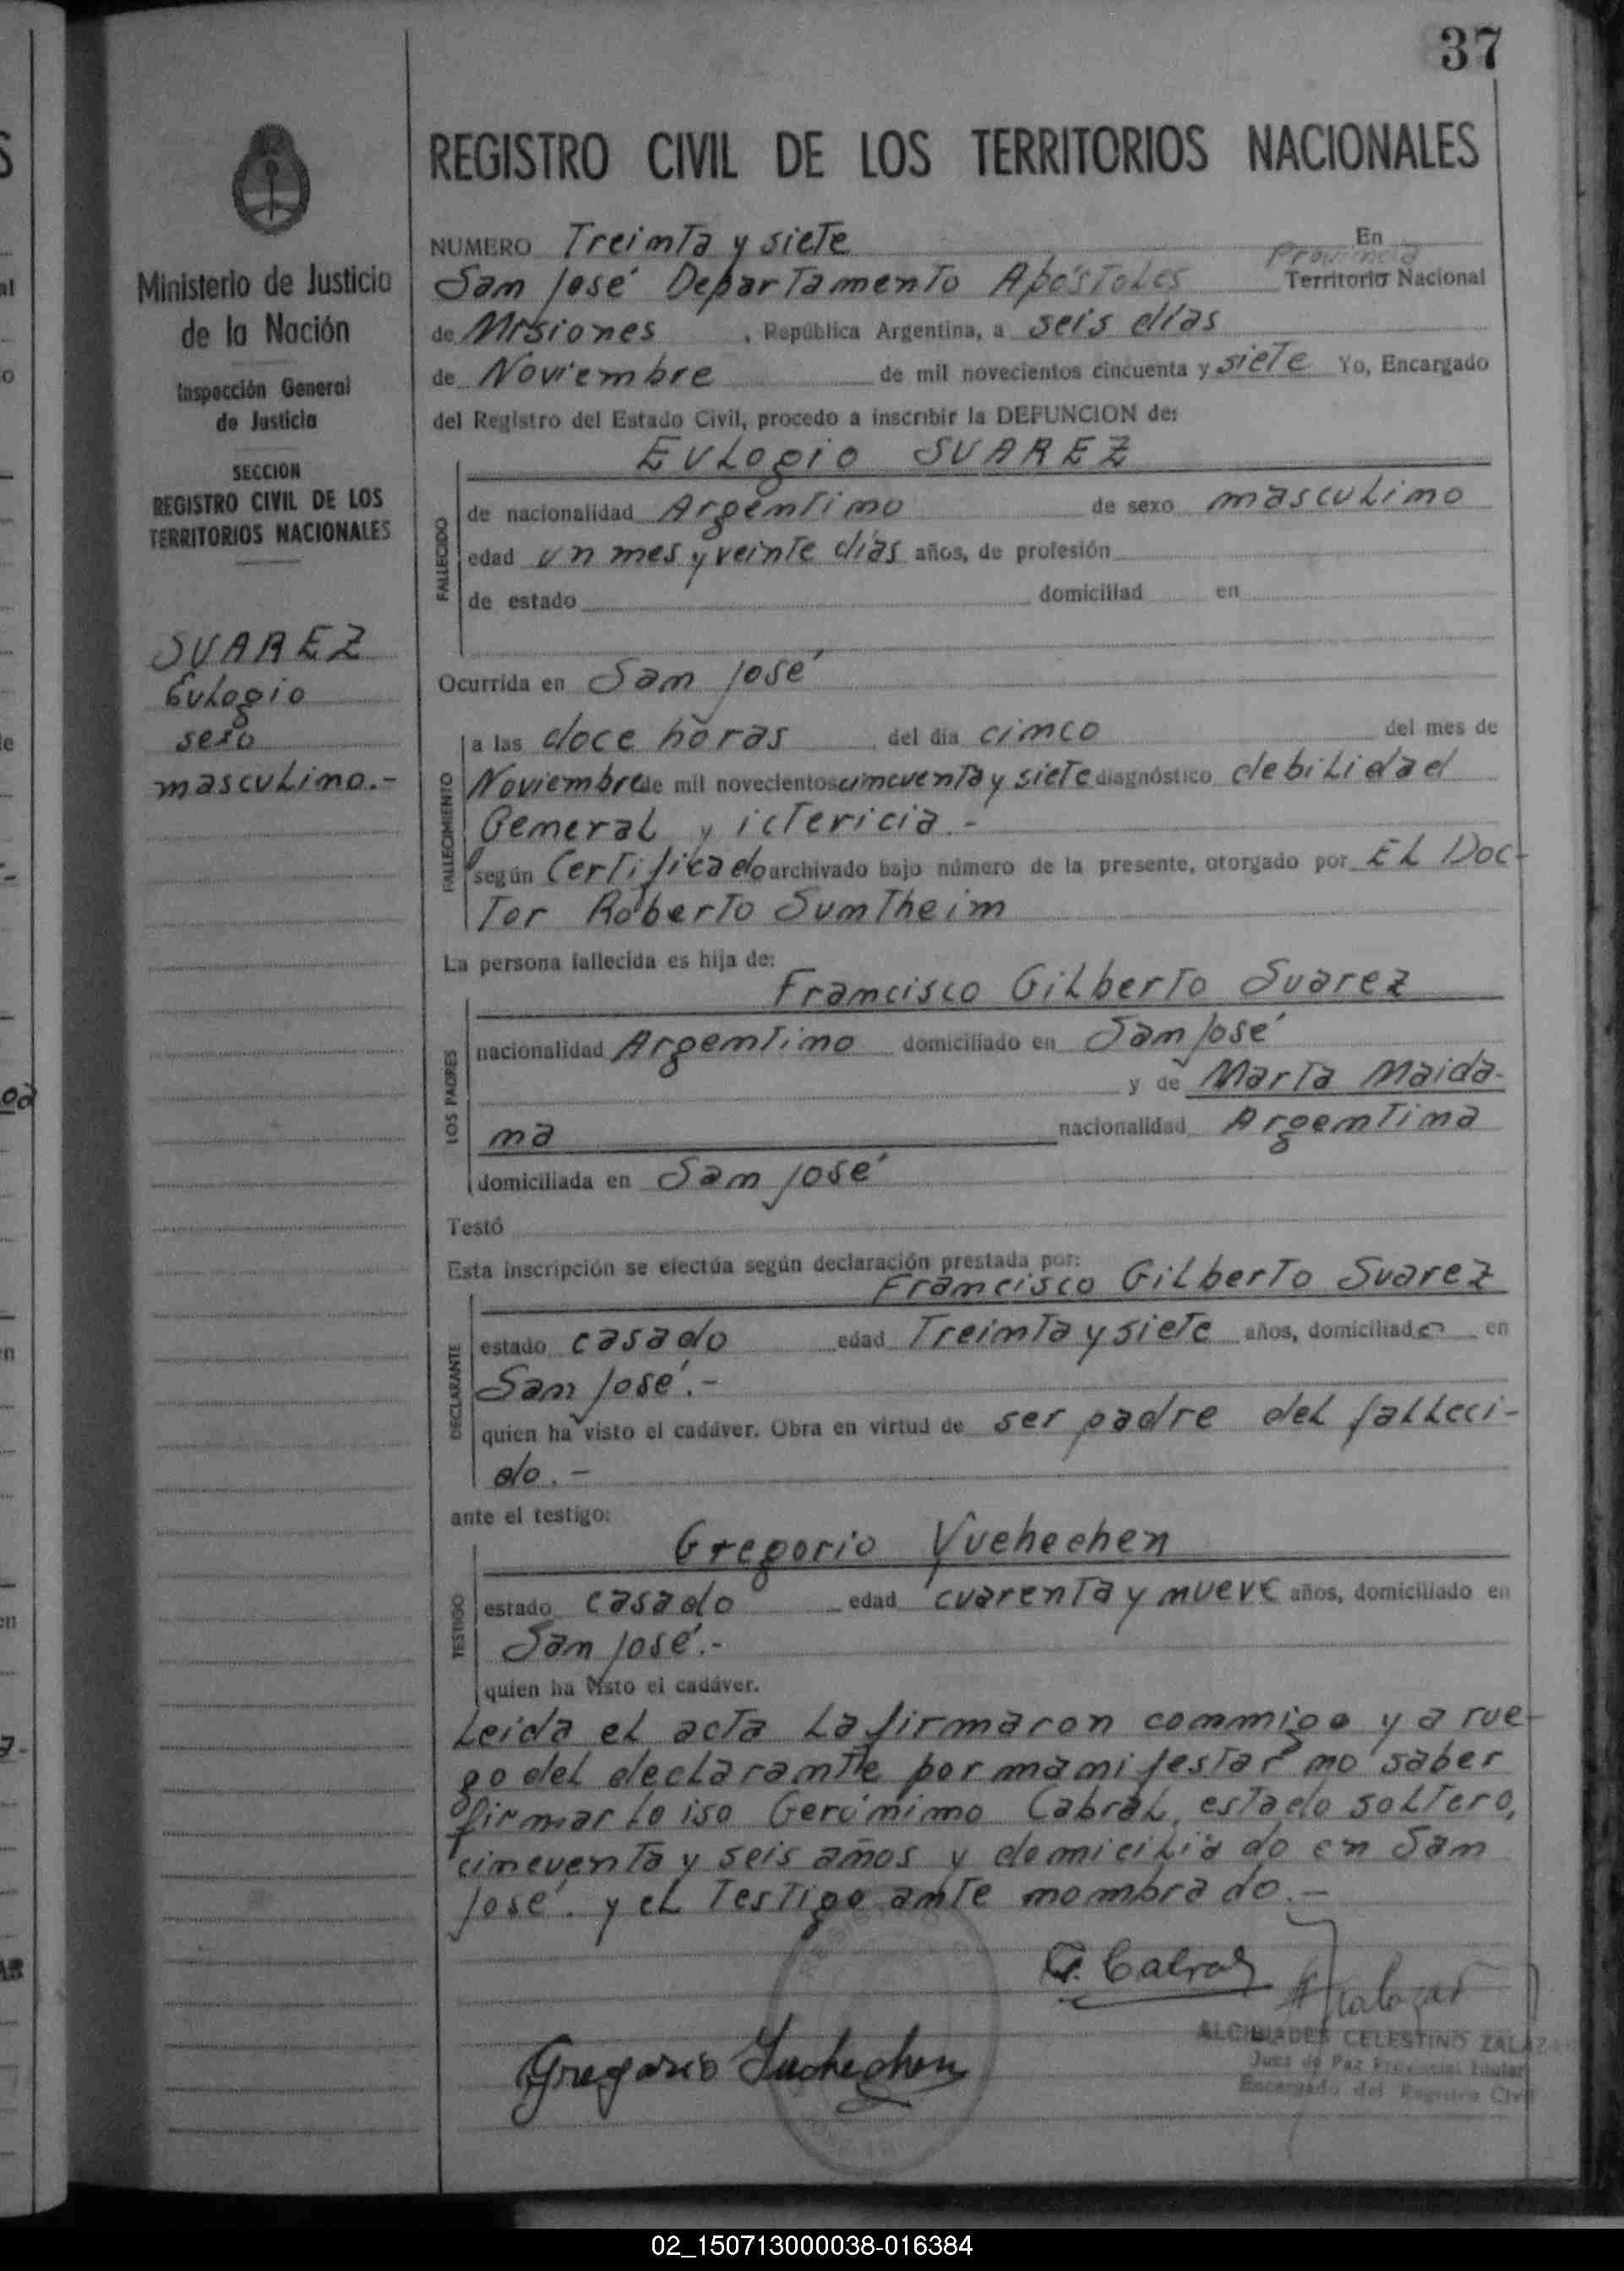 37
Ministerio de Justicia
de la Nación
Inspección General
de Justicia
SECCION
REGISTRO CIVIL DE LOS
TERRITORIOS NACIONALES
SUAREZ
Eulogio
sexo
masculino.-
REGISTRO CIVIL DE LOS TERRITORIOS NACIONALES
NUMERO Treinta y siete En
Provincia
San José Departamento Apóstoles Territorio Nacional
de Misiones , República Argentina, a seis días
de Noviembre de mil novecientos cincuenta y siete Yo, Encargado
del Registro del Estado Civil, procedo a inscribir la DEFUNCION de:
EULogio SUAREZ
FALLECIDO
de nacionalidad Argentino de sexo masculino
edad un mes y veinte días años, de profesión
de estado domiciliad en
Ocurrida en San José
FALLECIMIENTO
a las doce horas del día cinco del mes de
Noviembre de mil novecientos cincuenta y siete diagnóstico debilidad
General y ictericia.-
según Certificado archivado bajo número de la presente, otorgado por El Doc-
tor Roberto Suntheim
La persona fallecida es hija de:
Francisco Gilberto Suarez
LOS PADRES
nacionalidad Argentino domiciliado en San José
y de Marta Maida-
na nacionalidad Argentina
domiciliada en San José
Testó
Esta inscripción se efectúa según declaración prestada por:
Francisco Gilberto Suarez
DECLARANTE
estado casado edad Treinta y siete años, domiciliado en
San José.-
quien ha visto el cadáver. Obra en virtud de ser padre del falleci-
do.-
ante el testigo:
Gregorio Yuehechen
TESTIGO
estado casado edad cuarenta y nueve años, domiciliado en
San José.-
quien ha visto el cadáver.
Leida el acta la firmaron conmigo y a rue-
go del declarante por manifestar no saber
firmar lo iso Gerónimo Cabral, estado soltero,
cincuenta y seis años y domiciliado en San
José. y el Testigo ante nombrado.-
G. Cabral
Gregorio
ALCIBIADES CELESTINO ZALAZA
Juez de Paz Provincial titular
Encargado del Registro Civil
02_150713000038-016384